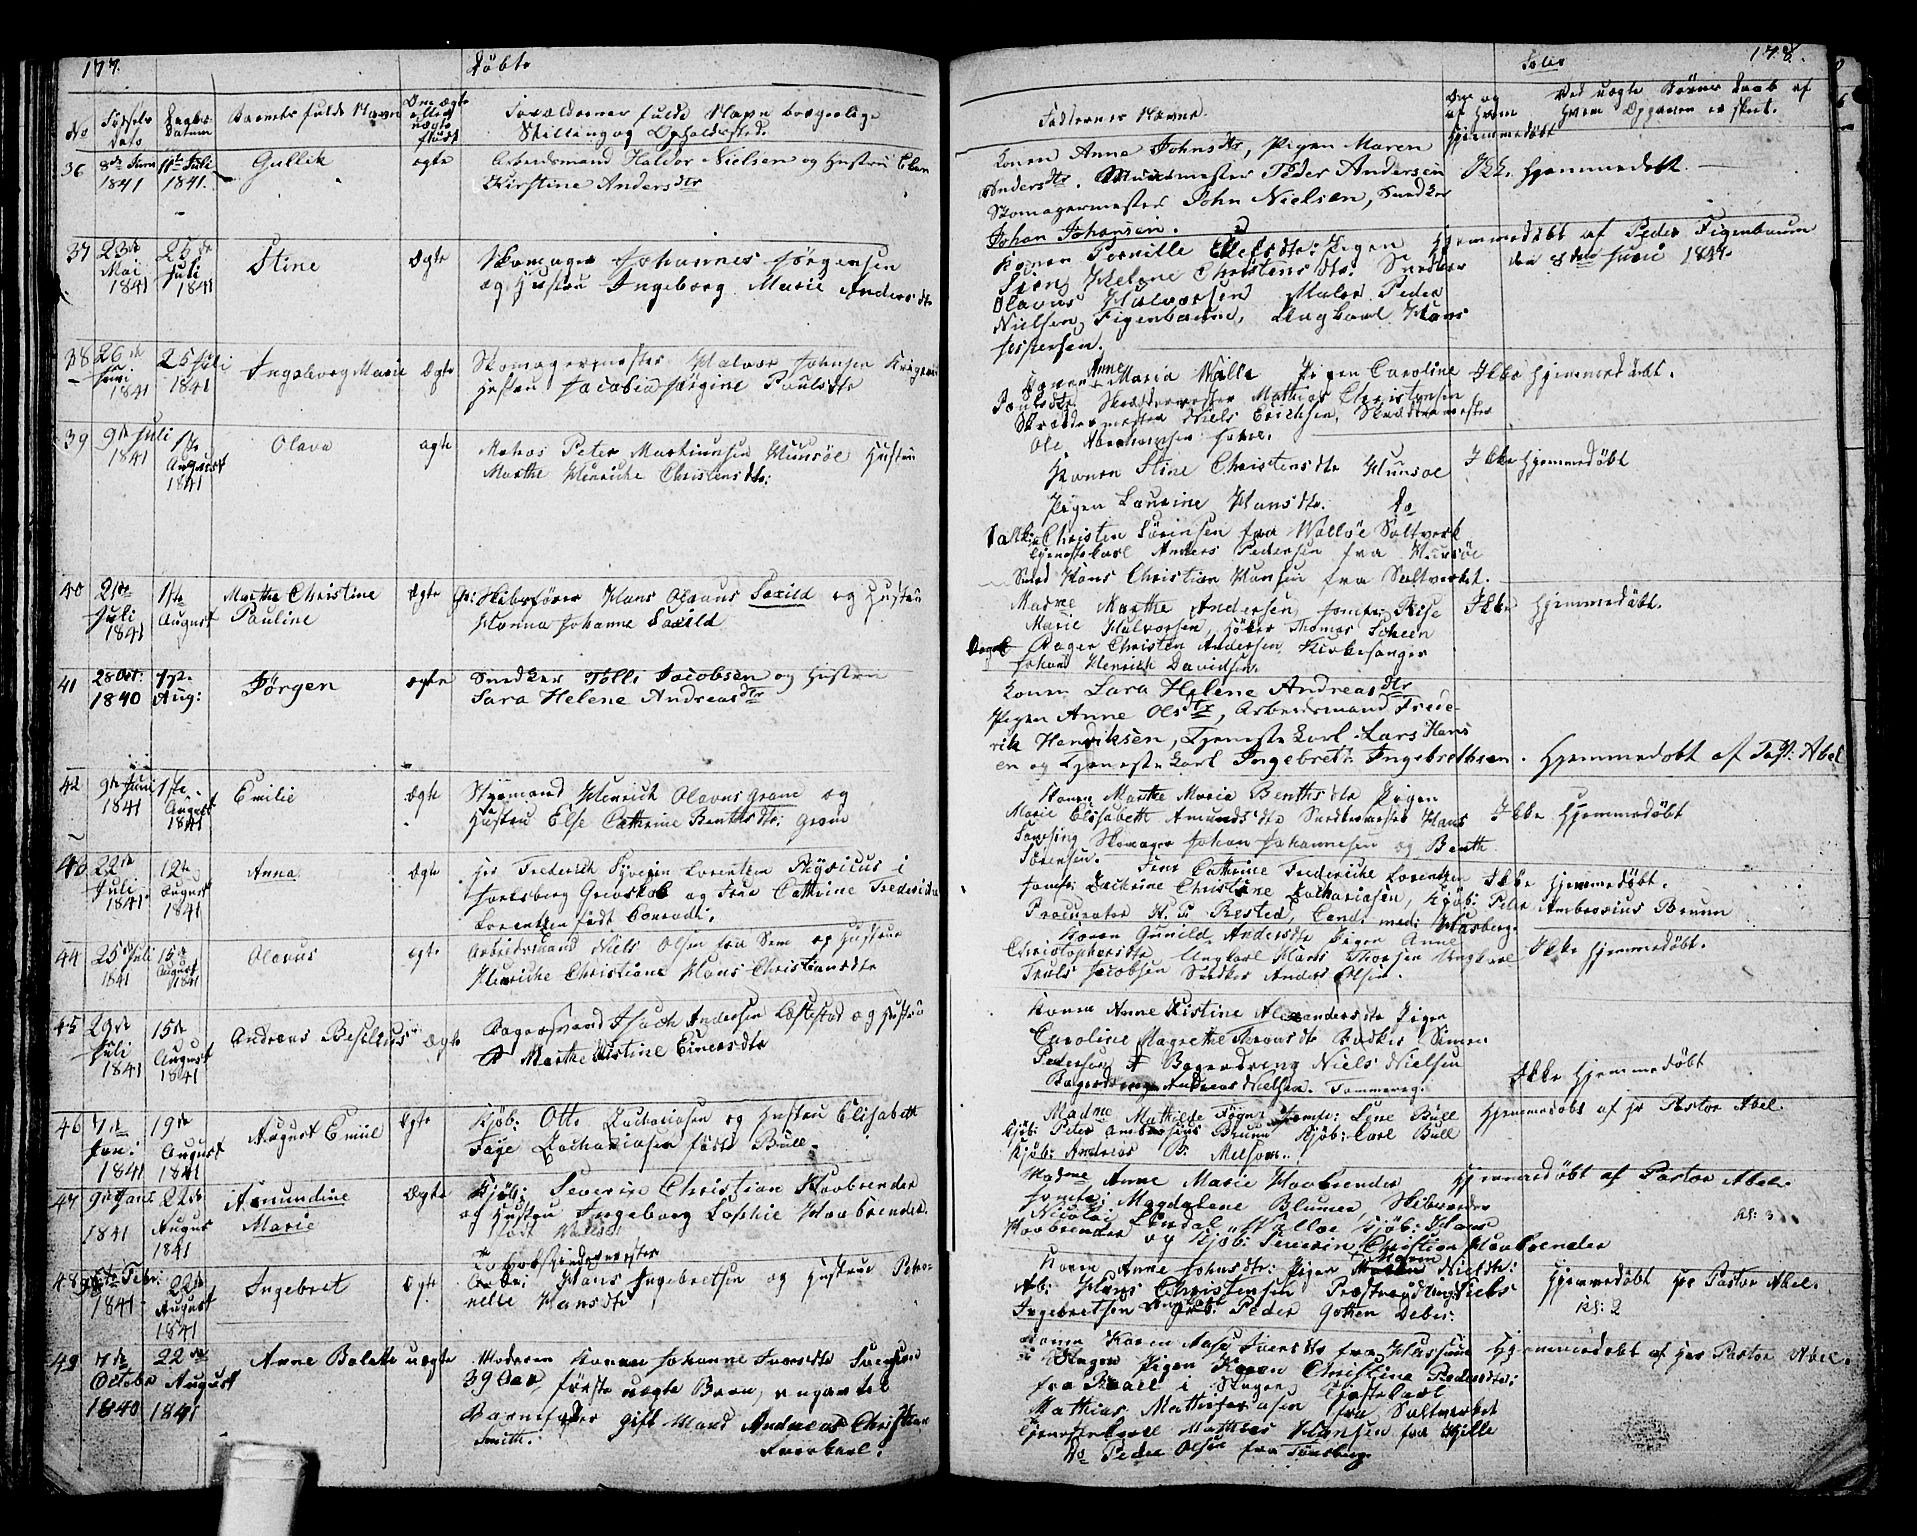 177.
Døbte
No
Fødsels dato
Daabs- datum
Barnets fulde Navn
Om ægte eller uægte født
Forældrenes fulde Navn borgerlige
Stilling og Opholdssted.
36
8de Juni 1841
11te Juli 1841.
Gullik
ægte
Arbeidsmand Haldor Nielsen og Hustru Elen
Kirstine Andersdtr
37
23de Mai 1841
25de Juli 1841
Stine
Ægte
Skomager Johannes Jørgensen
og Hustru Ingeborg Marie Andersdtr
38
26de Juni 1841
25 Juli 1841
Ingeborg Marie
Ægte
Skomagermester Halvor Johnsen
Hustru Jacobia Jørgine Paulsdtr
39
9de Juli 1841
1te August 1841
Olava
ægte
Matros Peter Martinusen Huusøe Hustru
Marthe Hinriche Christensdtr:
40
21de Juli 1841
1te August
Marthe Christine
Pauline
Ægte
Skibsfører Hans Olavus Foxild og Hustru
Hanna Johanne Foxild
41
28 Oct: 1840
1te Aug:
Jørgen
ægte
Snedker Tolle Jacobsen og Hustru
Sara Helene Andreasdtr
42
9de Juni 1841
1te August 1841
Emilie
Ægte
Styrmand Hinrich Olavus Grane og
Hustru Else Cathrine Benthsdtr: Gran
43
22de Juli 1841
12te August 1841
Anna
Ægte
Hr Frederich Lorentzen Physicus i
Jarlsberg Grevskab og Frue Cathrine Fredericke
Lorentzen født Conradi.
44
25de Juli 1841
15de August 1841
Olavus
ægte
Arbeidsmand Niels Olsen fra Sem og Hustrue
Hinriche Christiane Hans Christiansdtr
45
29de Juli 1841
15de August 1841
Andreas Besilius
Ægte
Bagersvend Isach Andersen Lessestad og Hustru
Marthe Kistine Einersdtr
46
7de Jan: 1841
19de August 1841
August Emiil
Ægte
Kjøb: Otto Zachariasen og Hustru Elisabeth
Faye Zachariasen født Bull
47
9de Jan: 1841
22de August 1841
Amundine
Marie
Ægte
Kjøb: Severin Christian Havbrender
og Hustru Ingeborg Sophie Havbrender
født
48
Febr: 1841
22de August 1841
Ingebret
Ægte
Hans Ingebretsen og Hustrue Peter-
nelle Hansdtr
49
7de October 1840
22de August 1841
Anne Bolette
uægte
Moderen Konen Johanne Iversdtr Svensen
39 Aar, første uægte Barn, angivet til
Barnefader gift Mand Andreas Christian
Smith.
178.
Folio
Faddernes Navne.
Om og af hvem Hjemmedøbt
Ved uægte Børns Daab af
hvem Opgaven er skeet.
Konen Anne Johnsdtr, Pigen Maren
Andersdtr. Muurmester Peder Andersen
Skomagermester John Nielsen, Snedker
Johan Johansen.
Ikke hjemmedøbt
Konen Pernille Olefsdtr: Pigen
Helene Christensdtr: Snedker
Olavus Halvorsen Maler Peder
Nielsen Figenbaum, Ungkarl Hans
Jespersen.
Hjemmedøbt af Peder Figenbaum
den 8de Juni 1841.
Konen Anne Maria Wille Pigen Caroline
Poulsdtr Skræddermester Mathias Christensen
Skræddermester Niels Erichsen, Skræddermester
Ole
Ikke hjemmedøbt.
Konen Stine Christensdtr Huusøe
Pigen Laurine Hansdtr. do
Christen Sørensen fra Walløe Saltverk
Tjenestekarl Anders Pedersen fra Huusøe
Smed Hans Christian Hansen fra Saltverket.
Ikke hjemmedøbt
Madme Marthe Andersen Jomfr: Else
Marie Halvorsen, Høker Thomas Scheen
Bager Christen Andersen Kirkesanger
Johan Henrich Davidsen.
Ikke hjemmedøbt.
Konen Sara Helene Andreasdtr
Pigen Anne Olsdtr, Arbeidsmand Frede-
rik Henriksen, Tjenestekarl Lars Hans
en og Tjenestekarl Ingebret Ingebrethsen.
Hjemmedøbt af Past: Abel
Konen Marthe Maria Benthsdtr Pigen
Marie Elisabeth Amundsdtr Snedkermester Hans
Skomager Johan Johannesen og Benth
Sørensen.
Ikke hjemmedøbt
Frue Cathrine Fredericke Lorentzen
Jomfr: Zachrine Christine Zachariasen, Kjøb: Peter Ambrosius Bruun
Procurator H. P. Rested, Cand: med: Hasberg.
Ikke hjemmedøbt.
Konen Gunild Andersdtr Pigen Anne
Christophersdtr Ungkarl Hans Thorsen Ungkarl
Truls Jacobsen Snedker Anders Olsen.
Ikke hjemmedøbt.
Konen Anne Kistine Alexandersdtr Pigen
Caroline Magrethe Simen
Pedersen Bagerdreng Niels Nielsen
Bagerdreng Andreas Nielsen.
Ikke hjemmedøbt
Madme Mathilde Føyn Jomfr: Lene Bull
Kjøb: Peter Ambrosius Bruun Kjøb: Carl Bull
Kjøb: Andreas B. Melsom.
Hjemmedøbt af Hr Pastor Abel
Madme Anne Marie Havbrender
Jomfr: Magdalene Blumer, Skibsreder
Nicolai Kjøb: Hans
Havbrender og Kjøb: Severin Christian Havbrender
Hjemmedøbt af Pastor Abel
Konen Anne Johnsdtr: Pigen Maren Nielsdtr:
Ab: Hans Christensen Niels
Ingebretsen Peder Gotten Debes.
Hjemmedøbt Hr Pastor Abel.
Konen Karen Aase Iversdtr fra
i Slagen Pigen Karen Christine Pedersdtr:
fra i Slagen
Mathias Mathisen fra Saltverket
Tjenestekarl Mathias Hansen fra
Do Peder Olsen fra Tønsberg.
Hjemmedøbt af Hr Pastor Abel.